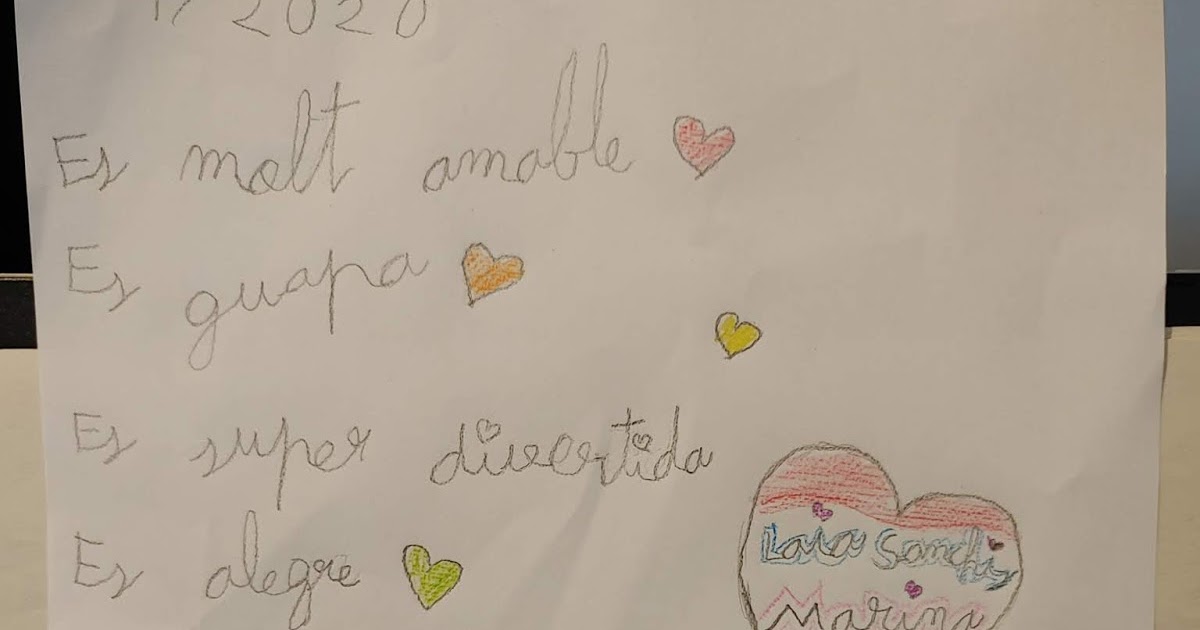 2020
Es molt amable
Es guapa
Es super divertida
Es alegre
Laia Sanchis
Marina